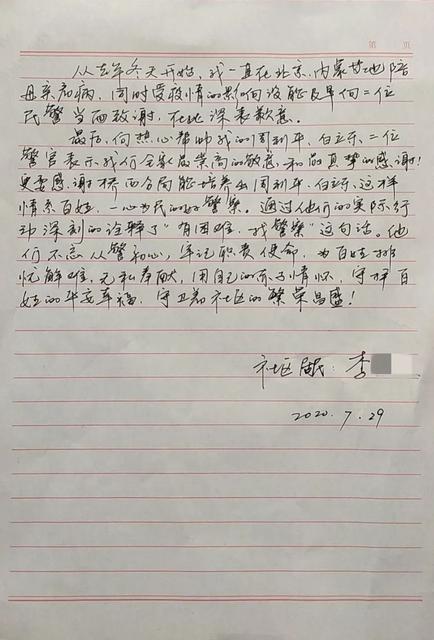 第 页
从去年冬天开始,我一直在北京、内蒙等地陪
母亲看病,同时受疫情的影响没能及早向二位
民警当面致谢,在此深表歉意。
最后,向热心帮助我的周利平、白立东二位
警官表示我们全家最崇高的敬意和最真挚的感谢!
更要感谢桥西分局能培养出周利平、白立东这样
情系百姓,一心为民的好警察。通过他们的实际行
动深刻的诠释了"有困难,找警察"这句话。他
们不忘从警初心,牢记职责使命,为百姓排
忧解难,无私奉献,用自己的赤子情怀,守护百
姓的平安幸福,守卫着社区的繁荣昌盛!
社区居民:李
2020.7.29